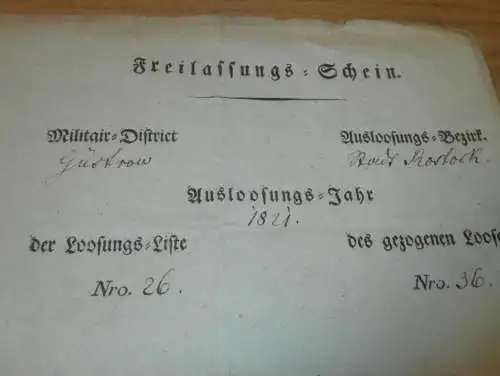 Freilassungs-Schein.
Militair-District Ausloosungs-Bezirk.
Güstrow Stadt Rostock.
Ausloosungs-Jahr
1821.
der Loosungs-Liste des gezogenen Loose
Nro. 26. Nro. 36.